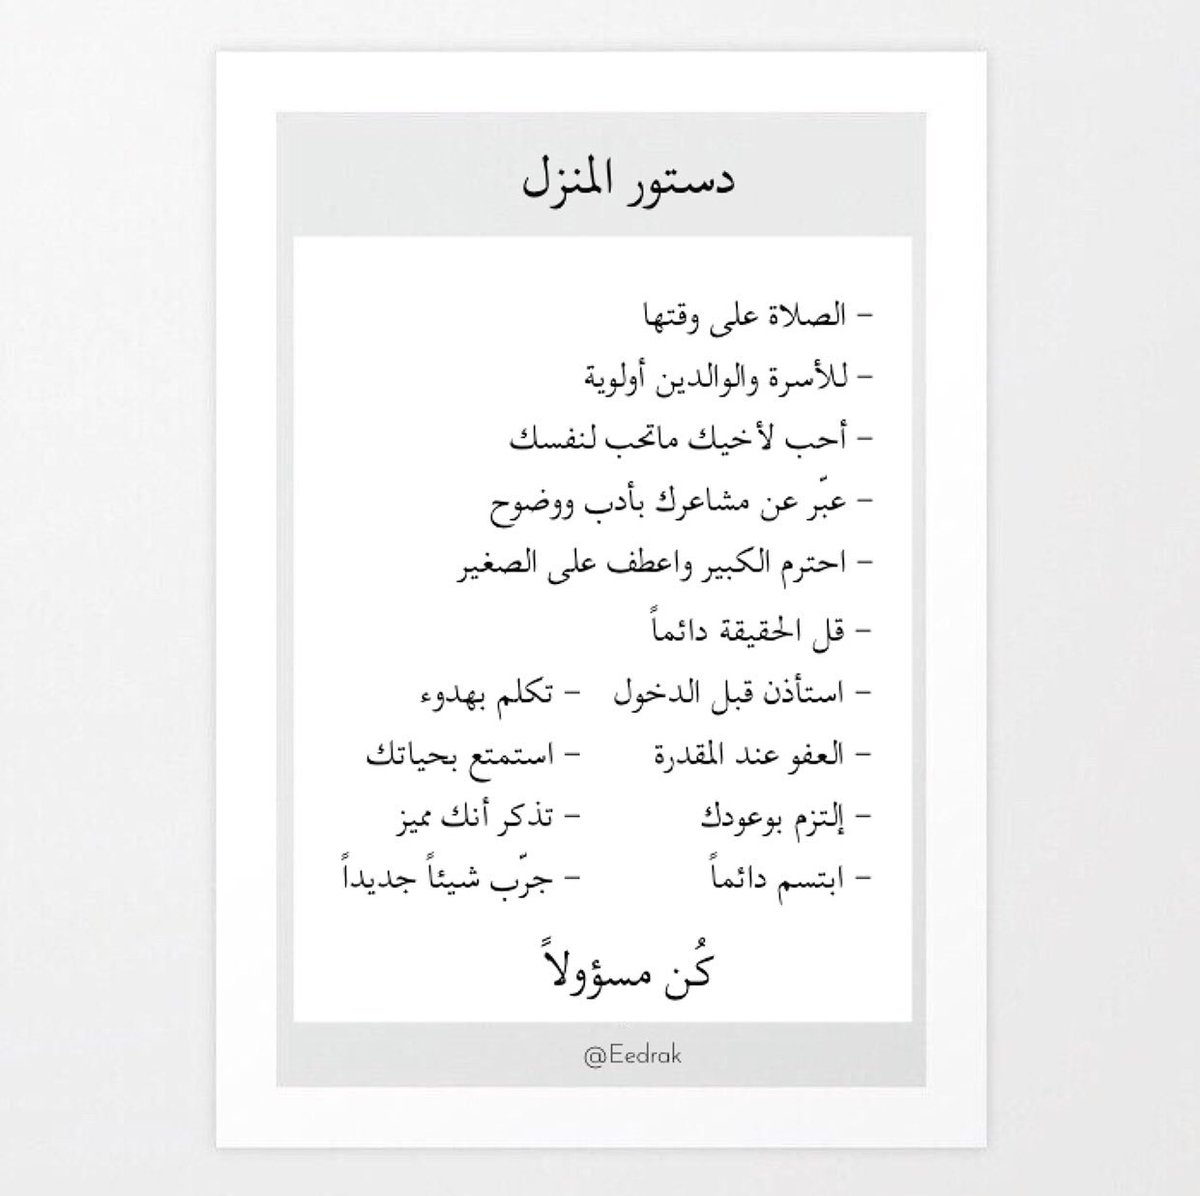 دستور المنزل
- الصلاة على وقتها
- للأسرة والوالدين أولوية
- أحب لأخيك ماتحب لنفسك
- عبّر عن مشاعرك بأدب ووضوح
- احترم الكبير واعطف على الصغير
- قل الحقيقة دائماً
- استأذن قبل الدخول - تكلم بهدوء
- العفو عند المقدرة - استمتع بحياتك
- إلتزم بوعودك - تذكر أنك مميز
- ابتسم دائماً - جرّب شيئاً جديداً
كُن مسؤولاً
@Eedrak